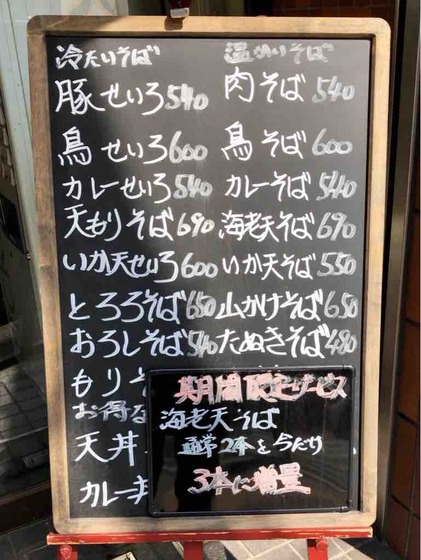 冷たいそば
豚せいろ540
鳥せいろ600
カレーせいろ540
天もりそば690
いか天せいろ600
とろろそば650
おろしそば540
もりそ
お得な
天丼
カレー丼
温かいそば
肉そば540
鳥そば600
カレーそば540
海老天そば690
いか天そば550
山かけそば650
たぬきそば480
期間限定サービス
海老天そば
通常2本を今だけ
3本に増量